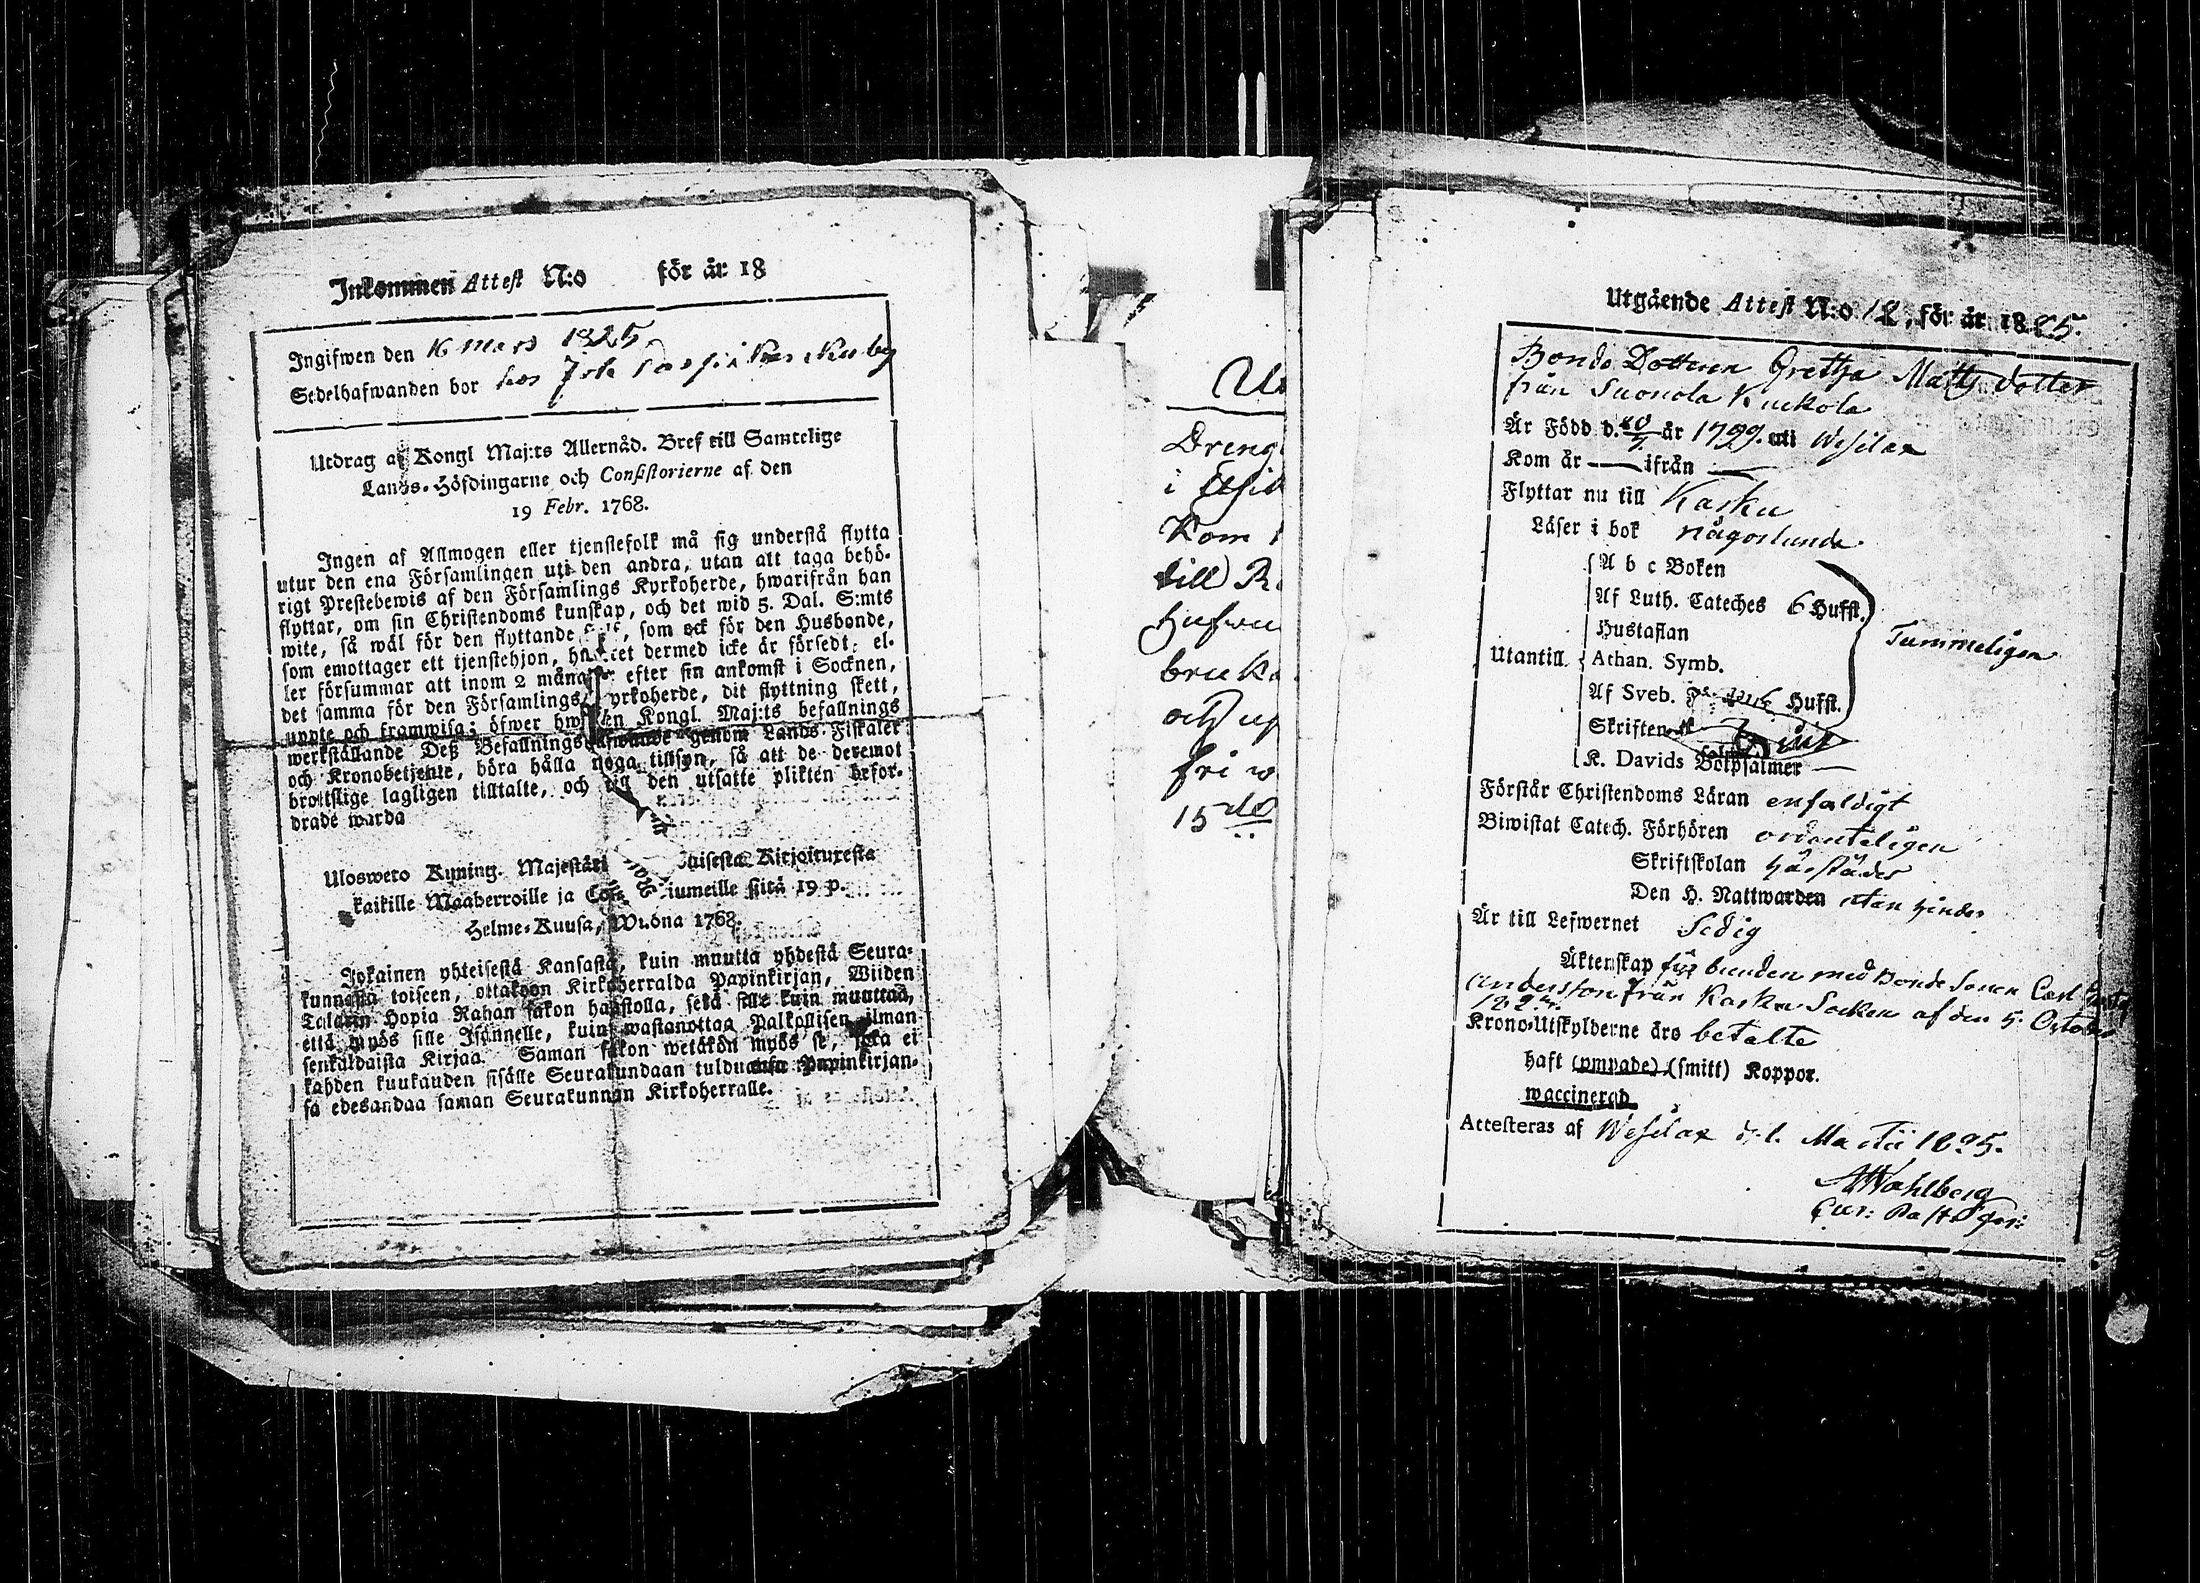 Inkommen Attest N:o för år 18
Ingifwen den 16 Mars 1825
Sedelhafwanden bor hos
Utdrag af Kongl Maj:ts Allernåd. Bref till Samtelige
Lands-Höfdingarne och Consistorierne af den
19 Febr. 1768.
Ingen af Allmogen eller tjenstefolk må sig understå flytta
utur den ena Församlingen uti den andra, utan att taga behö-
rigt Prestebewis af den Församlings Kyrkoherde, hwarifrån han
flyttar, om sin Christendoms kunskap, och det wid 5. Dal. S:mts
wite, så wäl för den flyttande, som ock för den Husbonde,
som emottager ett tjenstehjon, hwilket dermed icke är försedt; el-
ler försummar att inom 2 månader efter sin ankomst i Socknen,
det samma för den Församlings Kyrkoherde, dit flyttning skett,
uppte och framwisa; öfwer hwilken Kongl. Maj:ts befallnings
werkställande Deß Befallningshafwande genom Lands-Fiskaler
och Kronobetjente, böra hålla noga tillsyn, så att de deremot
brottslige lagligen tilltalte, och til den utsatte plikten befor-
drade warda
Uloswetо Kuning. Majestäti aisesta Kirjoituxesta
kaikille Maaherroille ja Con iumeille siitä 19 p.
Helme-Kuusa, Wuona 1768.
Jokainen yhteisestä Kansasta, kuin muutta yhdestä Seura-
kunnasta toiseen, ottakoon Kirkoherralda Papinkirjan, Wiiden
Talarin Hopia Rahan sakon haastolla, sekä sille kuin muuttaa,
että myös sille Isännelle, kuin wastanottaa Palkollisen ilman
senkaldaista Kirjaa. Saman sakon wetäkön myös se, joka ei
kahden kuukauden sisälle Seurakundaan tulduansa Papinkirjan-
sa edesandaa saman Seurakunnan Kirkoherralle.
Dreng
i
Kom
till
fri
15
Utgående Attest N:o 12, för år 1825.
Bonde Dottren Gretha Matts dotter
från Suonola Kuckola
Är Född d. 20/7 år 1799. uti Wesilax
Kom år — ifrån —
Flyttar nu till Karku
Läser i bok någorlunda
A b c Boken
Af Luth. Cateches 6 Hufst.
Hustaflan
Tummeligen
Utantill Athan. Symb.
Af Sveb. Hufst.
Skriften
K. Davids Botpsalmer —
Förstår Christendoms Läran enfaldigt
Biwistat Catech. Förhören ordenteligen
Skriftskolan härstädes
Den H. Nattwarden utan hinder
Är till Lefwernet Sedig
Äktenskap förbunden med Bonde Sonen Carl
Andersson från Karku Socken af den 5. October
1824
Krono-Utskylderne äro betalte
haft (ympade) (smitt) Koppor.
waccinerad
Attesteras af Wesilax d. 1. Martii 1825.
A Wahlberg